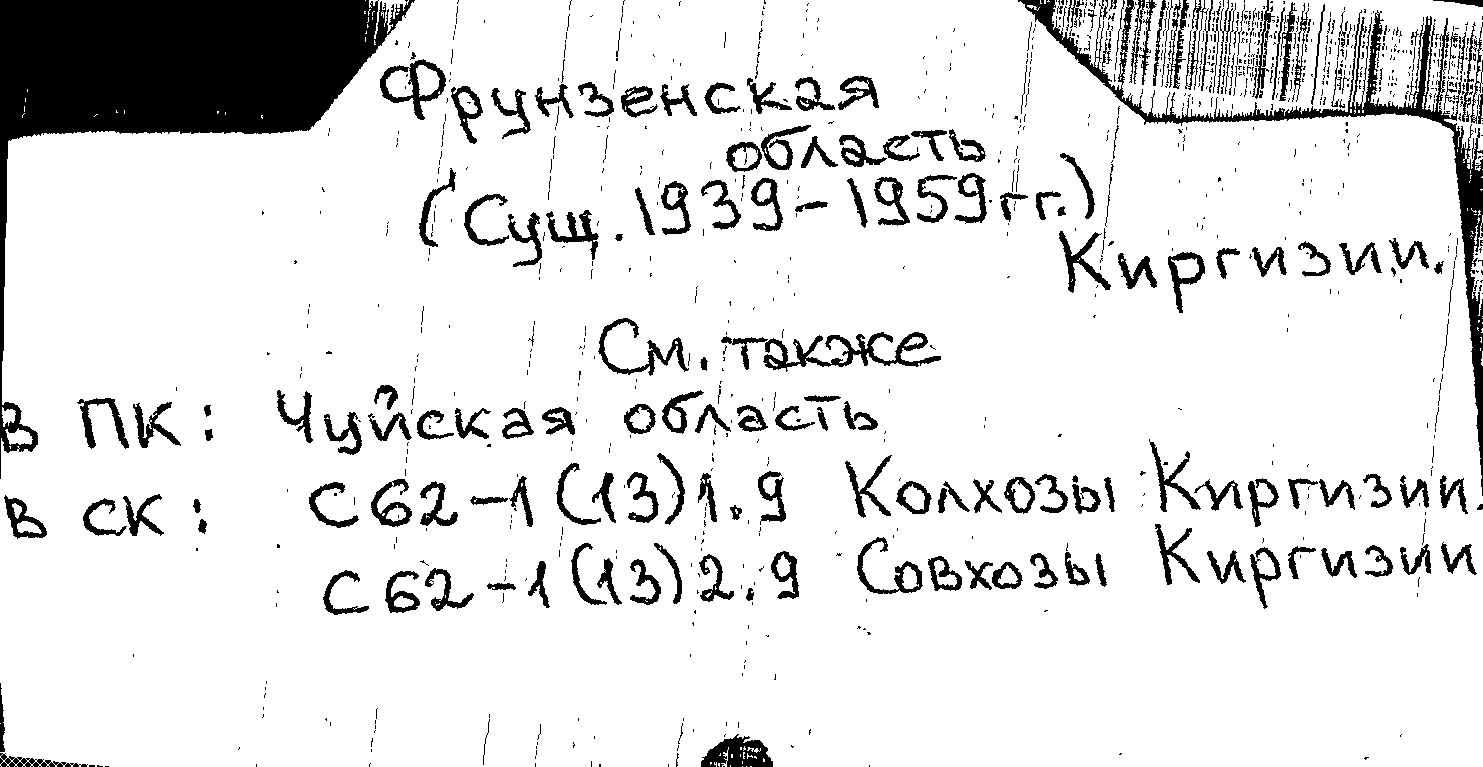 Фрунзенская
область
(Сущ. 1939-1959гг.)
Киргизии.
См. также
в ПК: Чуйская область
в СК: С62-1(13)1.9 Колхозы Киргизии.
С62-1(13)2.9 Совхозы Киргизии